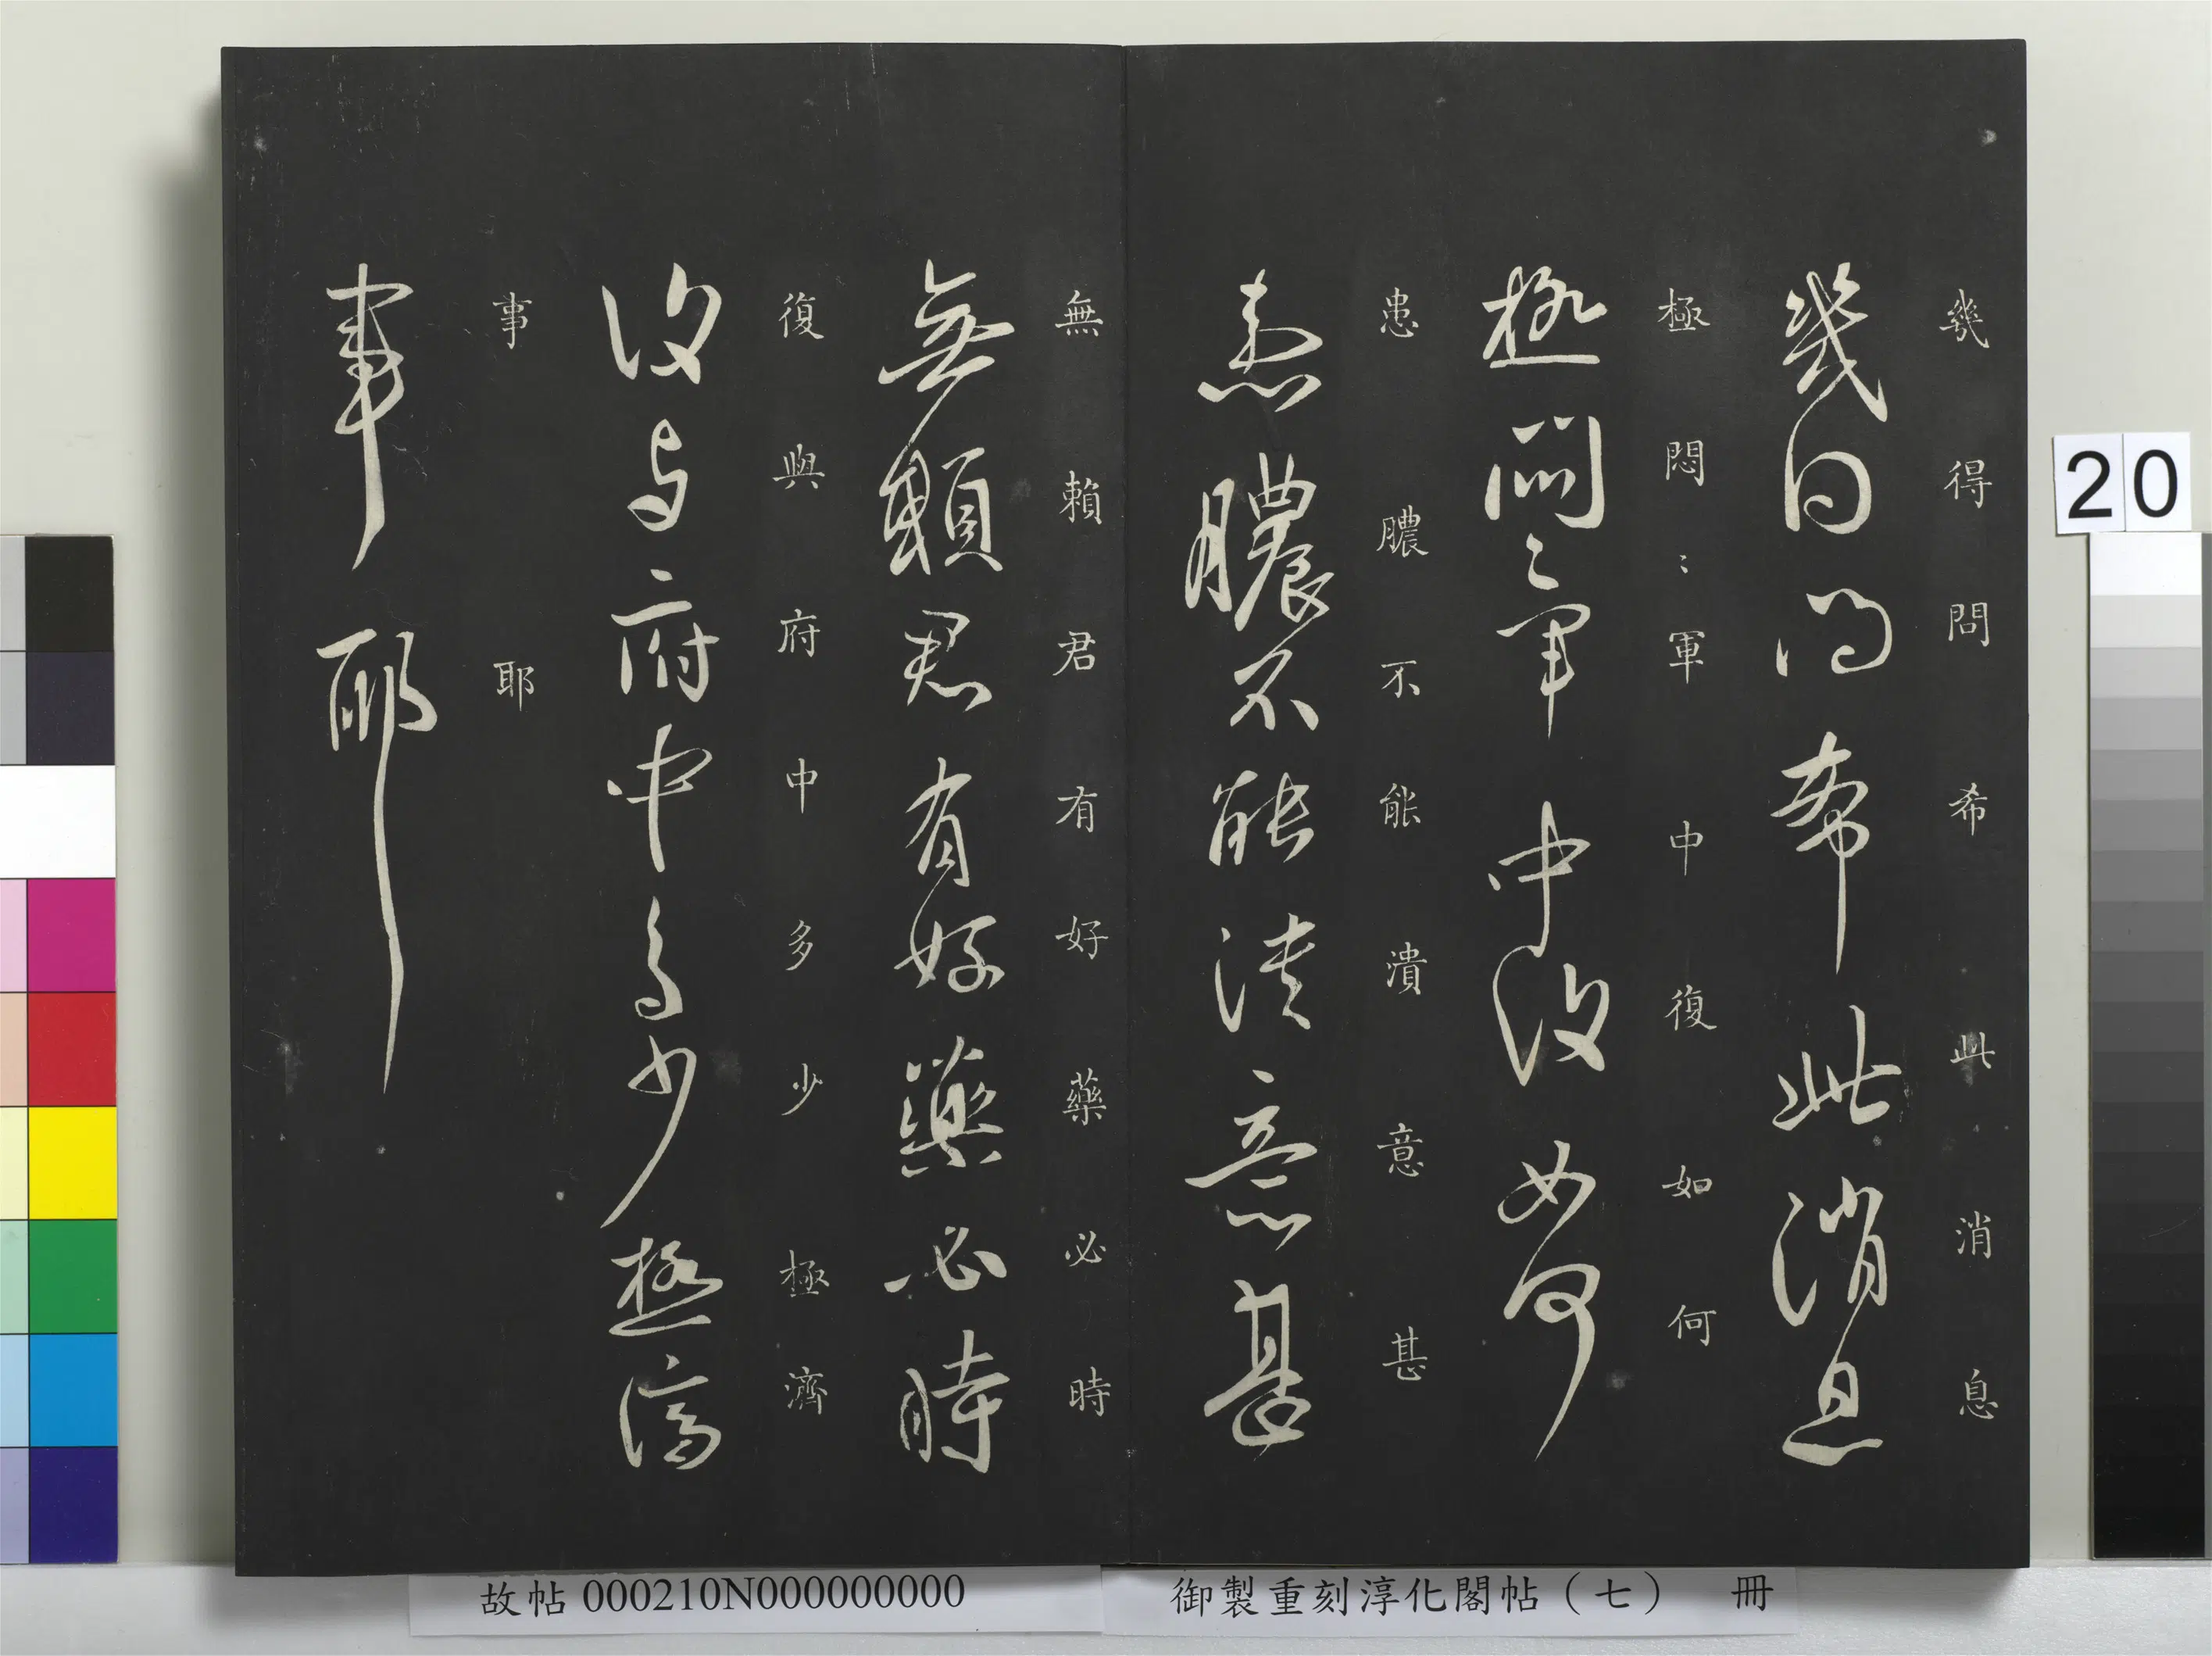 幾得問希此消息
幾得問希此消息
極悶〻軍中復如何
極悶〻軍中復如何
患膿不能潰意甚
患膿不能潰意甚
無賴君有好藥必時
無賴君有好藥必時
復與府中多少極濟
復與府中多少極濟
事耶
事耶
20
御製重刻淳化閣帖（七） 冊
故帖000210N000000000